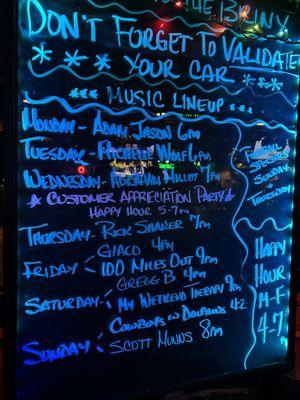 THE BRINY
DON'T FORGET TO VALIDATE
YOUR CAR
MUSIC LINEUP
MONDAY - ADAM JASON 6PM
TUESDAY - MICHAEL WOLF 6PM
WEDNESDAY - ABRAHAM MILLET 7PM
A CUSTOMER APPRECIATION PARTY
HAPPY HOUR 5-7PM
THURSDAY - RICK SHALER 7PM
GIACO 4PM
FRIDAY < 100 MILES OUT 9PM
GREGG B 4PM
SATURDAY - < MY WEEKEND THERAPY 9PM
COWBOYS W DOLPHINS 4-2
SUNDAY < SCOTT MUNNS 8PM
SPECIAL
SUNDAY
THURSDAY
HAPPY
HOUR
M-F
4-7
PM